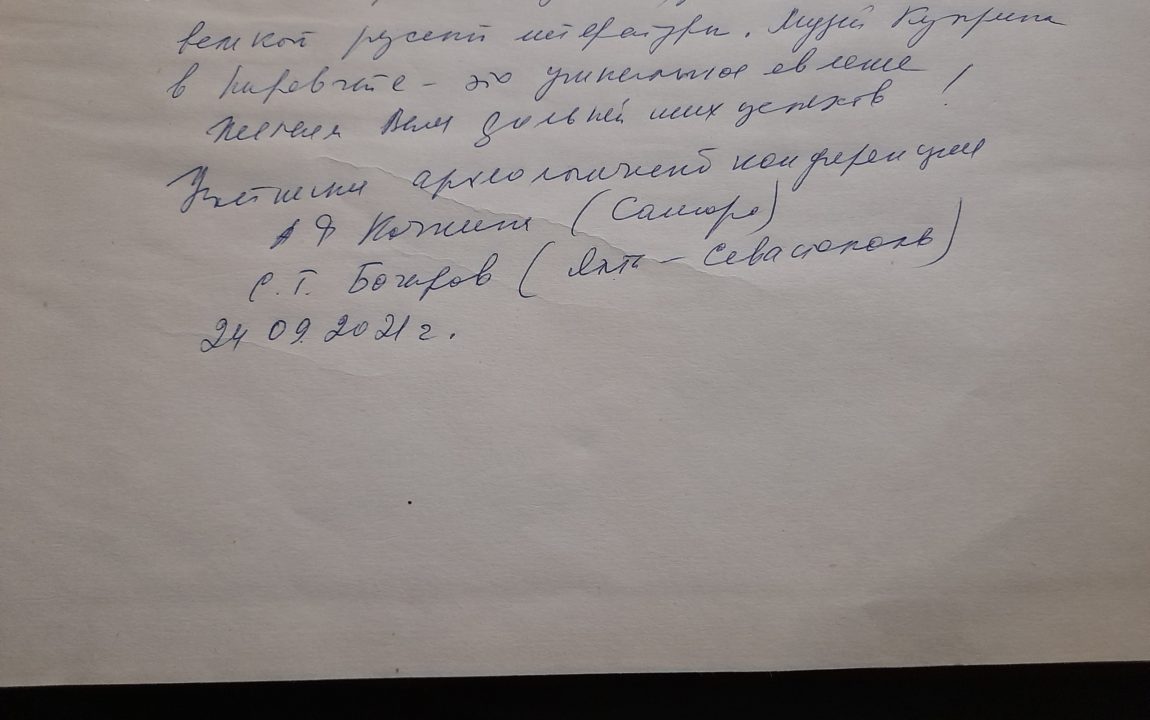 великой русской литературы. Музей Куприна
в Наровчате – это уникальное явление
Желаем Вам дальнейших успехов !
Участники археологической конференции
А Ф Кочкина (Самара)
С. Г. Бочаров (Ялта – Севастополь)
24 09. 2021 г.